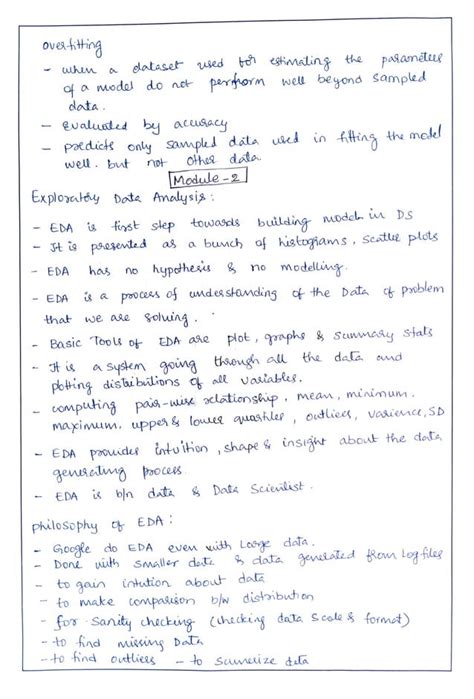 overfitting
- when a dataset used for estimating the parameters
of a model do not perform well beyond sampled
data.
- Evaluated by accuracy
- predicts only sampled data used in fitting the model
well. but not other data.
Module -2
Exploratory Data Analysis:
- EDA is first step towards building model in DS
- It is presented as a bunch of histograms, scatter plots
- EDA has no hypothesis & no modelling.
- EDA is a process of understanding of the Data of problem
that we are solving.
- Basic Tools of EDA are plot, graphs & summary stats
- It is a system going through all the data and
plotting distributions of all variables.
- computing pair-wise relationship, mean, minimum,
maximum, upper & lower quartiles, outliers, varience, SD
- EDA provides intuition, shape & insight about the data
generating process.
- EDA is b/n data & Data Scientist.
philosophy of EDA:
- Google do EDA even with Large data.
- Done with smaller data & data generated from log files
- to gain intution about data
- to make comparison b/w distribution
- for Sanity checking (checking data Scale & format)
- to find missing Data
- to find outliers - to sumerize data